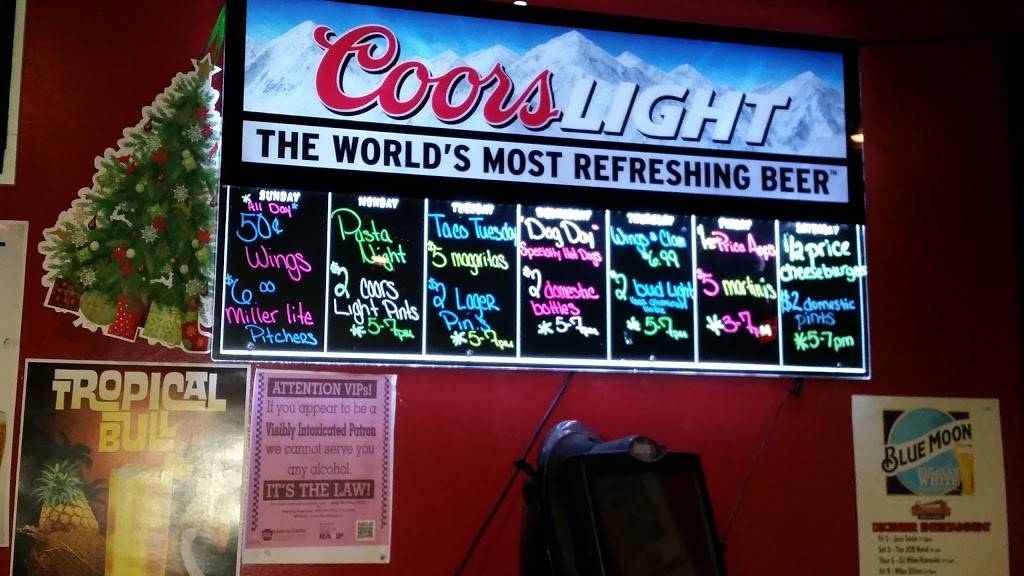 Coors LIGHT
THE WORLD'S MOST REFRESHING BEER™
SUNDAY
*All Day*
50¢
Wings
$6.00
Miller lite
Pitchers
MONDAY
Pasta
Night
$2 Coors
Light Pints
*5-7pm
TUESDAY
Taco Tuesday
$5 magaritas
$2 Lager
Pints
*5-7pm
WEDNESDAY
"Dog Day"
Specialty Hot Dogs
$2 domestic
bottles
*5-7pm
THURSDAY
Wings & Clam
$6.99
$2 bud light
*5-7pm
FRIDAY
Price Apps
$5 martinis
*3-7pm
SATURDAY
1/2 price
cheeseburgers
$2 domestic
pints
*5-7pm
TROPICAL
BULL
ATTENTION VIPs!
If you appear to be a
Visibly Intoxicated Patron
we cannot serve you
any alcohol.
IT'S THE LAW!
BLUE MOON
BELGIAN
WHITE
DECEMBER ENTERTAINMENT